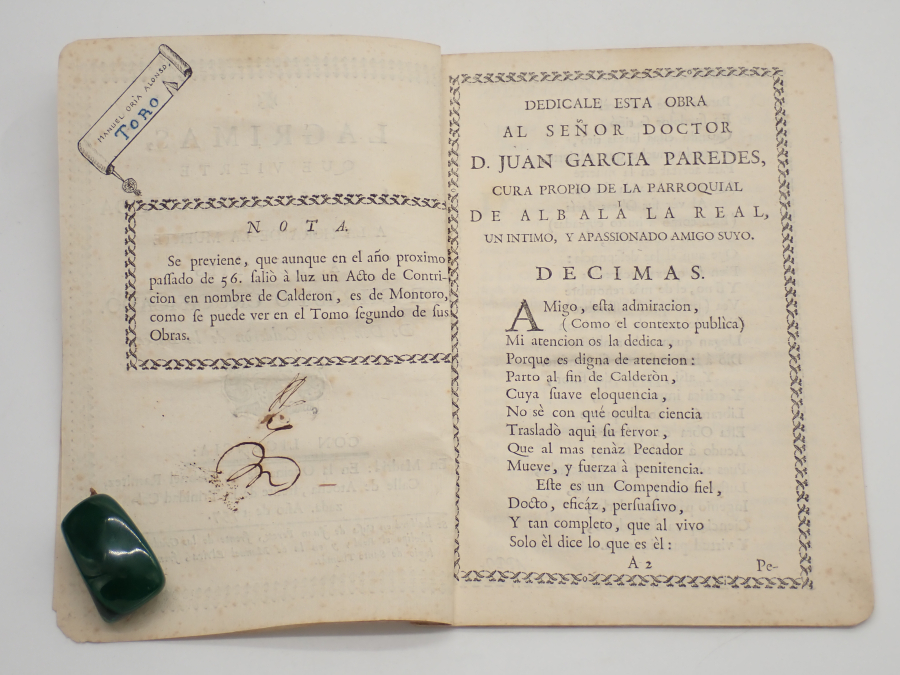 MANUEL ORIA ALONSO.
TORO
NOTA.
Se previene, que aunque en el año proximo
passado de 56. saliò à luz un Acto de Contri-
cion en nombre de Calderon, es de Montoro,
como se puede ver en el Tomo segundo de sus
Obras.
DEDICALE ESTA OBRA
AL SEÑOR DOCTOR
D. JUAN GARCIA PAREDES,
CURA PROPIO DE LA PARROQUIAL
DE ALBALÀ LA REAL,
UN INTIMO, Y APASSIONADO AMIGO SUYO.
DECIMAS.
AMigo, esta admiracion,
(Como el contexto publica)
Mi atencion os la dedica,
Porque es digna de atencion:
Parto al fin de Calderòn,
Cuya suave eloquencia,
No sè con qué oculta ciencia
Trasladò aqui su fervor,
Que al mas tenàz Pecador
Mueve, y fuerza à penitencia.
Este es un Compendio fiel,
Docto, eficáz, persuasivo,
Y tan completo, que al vivo
Solo èl dice lo que es èl:
A 2
Pe-